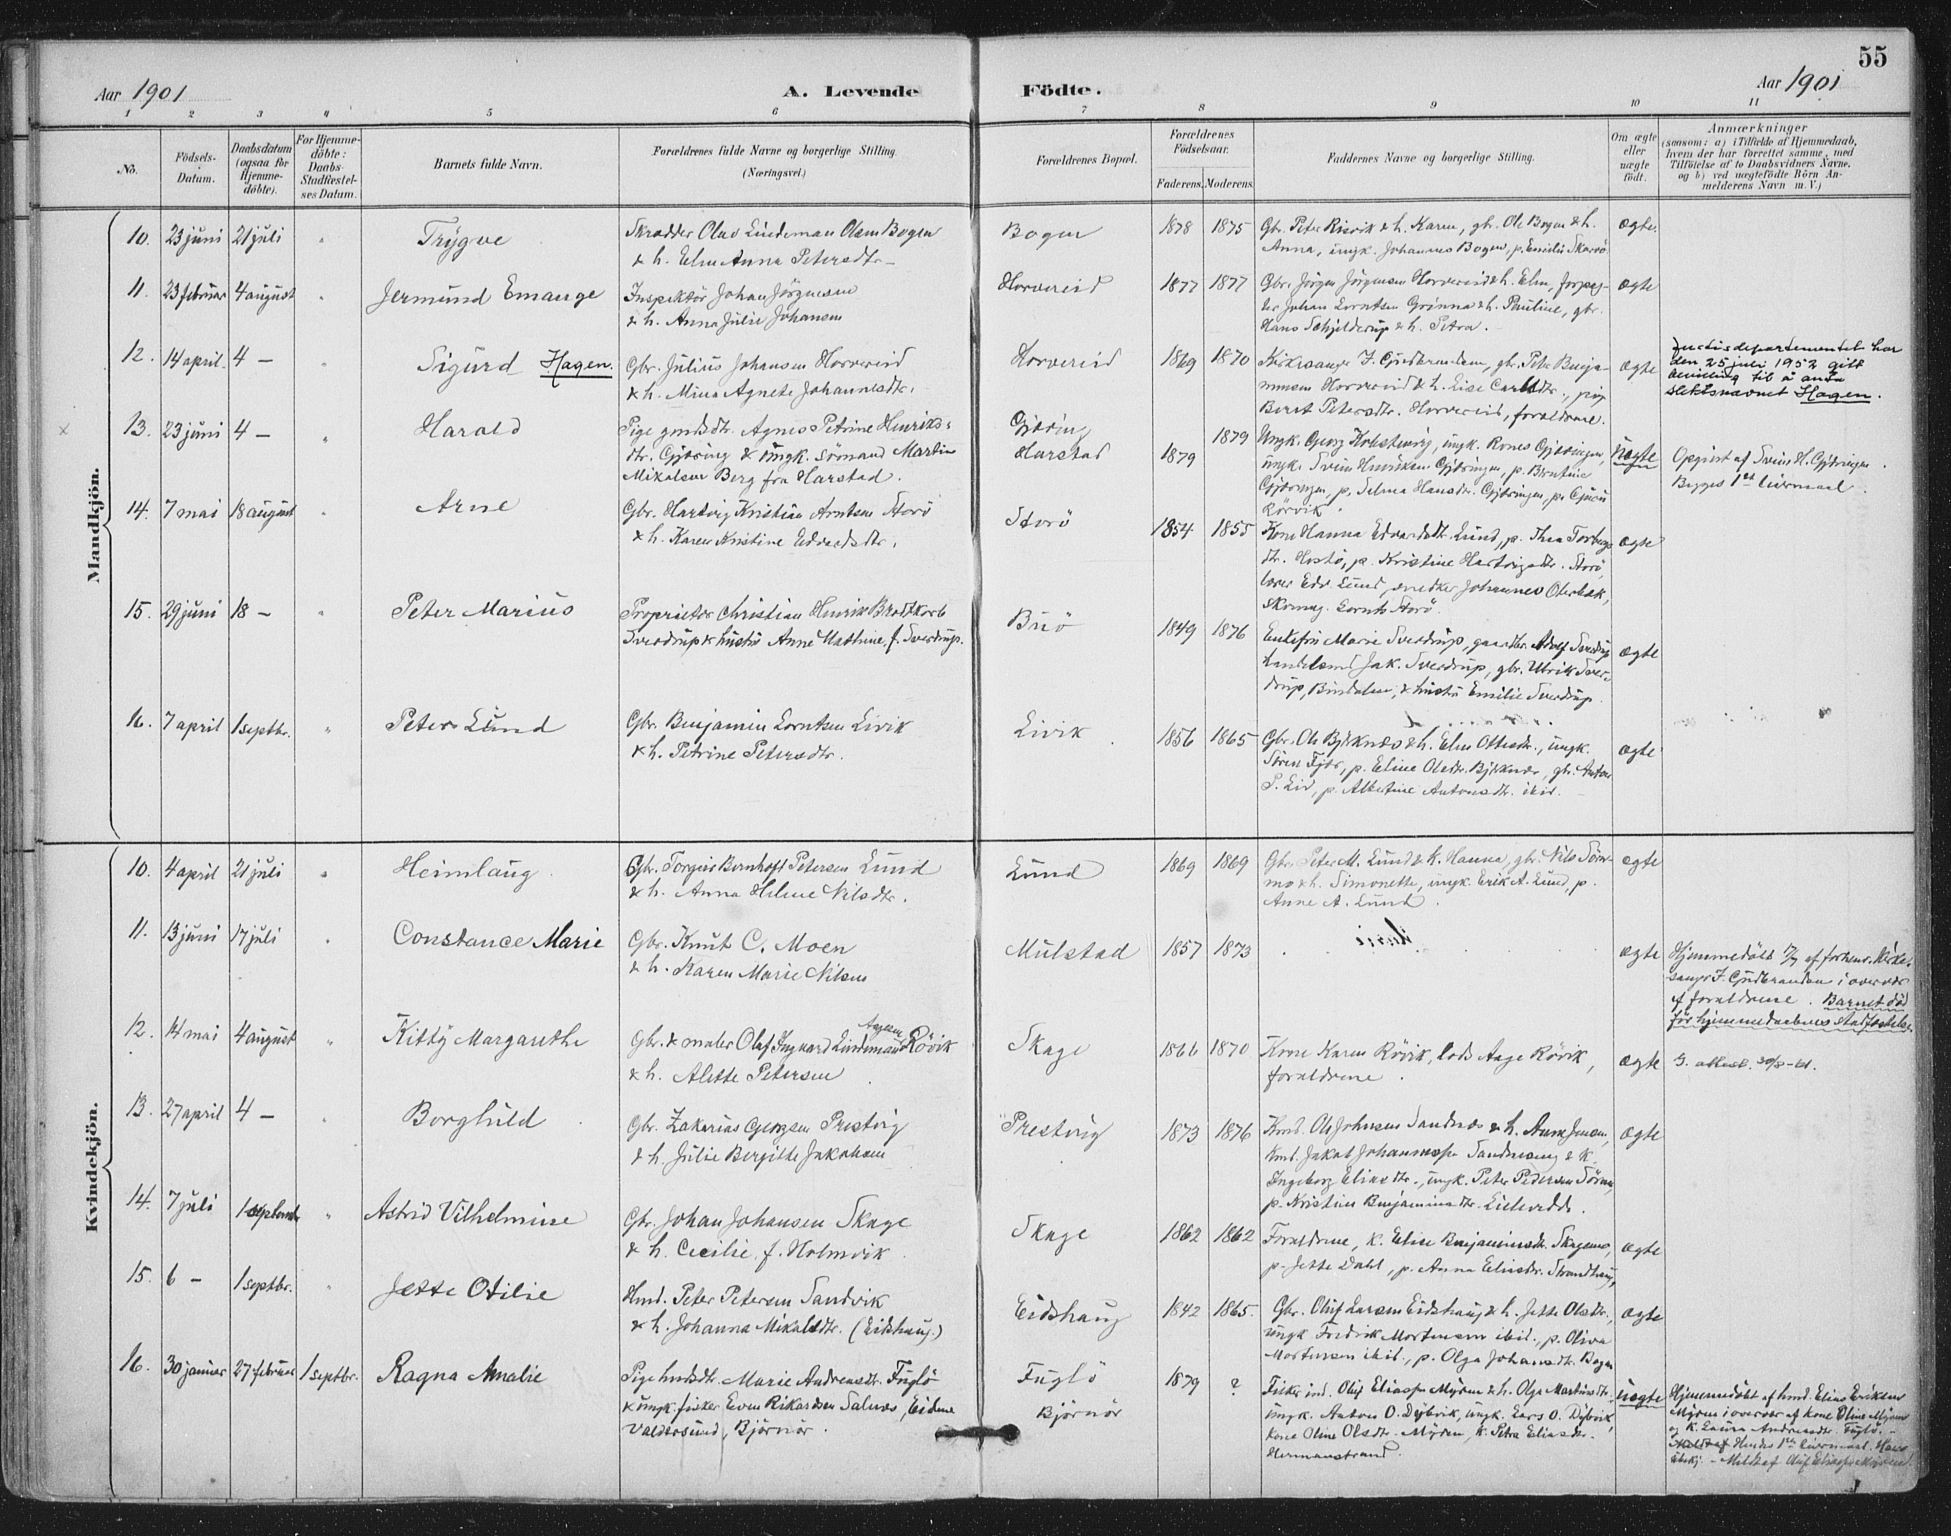 55
Aar 1901
A. Levende
Födte.
Aar 1901
1 2 3 4 5 6 7 8 9 10 11
No.
Födsels-Datum.
Daabsdatum (ogsaa for Hjemme-döbte).
For Hjemme-döbte: Daabs-Stadfæstel-ses Datum.
Barnets fulde Navn.
Forældrenes fulde Navne og borgerlige Stilling.
(Næringsvei.)
Forældrenes Bopæl.
Forældrenes Födselsaar.
Faderens. Moderens.
Faddernes Navne og borgerlige Stilling.
Om ægte eller uægte födt.
Anmærkninger
(saasom: a) i Tilfælde af Hjemmedaab,
hvem der har forrettet samme, med
Tilföielse af to Daabsvidners Navne.
og b) ved uægtefödte Börn An-
melderens Navn m. V.)
Mandkjön.
10. 23 juni 21 juli " Trygve
Skrædder Olav Lindeman Olsen Bogen
& h. Elen Anna Petersdtr.
Bogen 1878 1875
Gbr. Peter Risvik & h. Karen, gbr. Ole Bogen & h.
Anna, ungk. Johannes Bogen, p. Emilie Skarsö
ægte.
11. 23 februar 4 august " Jermund Emange
Inspektör Johan Jörgensen
& h. Anna Julie Johansen
Horvereid 1877 1877
Gbr. Jörgen Jörgensen Horvereid & h. Elen,
Johan Lorntsen Grönna & h. Pauline, gbr.
Hans Schjelderup & h. Petra.
ægte
12. 14 april 4 — Sigurd Hagen.
Gbr. Julius Johansen Horvereid
& h. Mina Agnete Johannesdtr.
Horvereid 1869 1870
Kirkesanger F. Gudbrandsen, gbr. Peter Benja-
minsen Horvereid & h. Lise Carlsdtr., pige
Berit Petersdtr. Horvereid, forældrene.
ægte
Justisdepartementet har
den 25 juli 1952 gitt
bevilling til å anta
slektsnavnet Hagen.
x 13. 23 juni 4 — " Harald
Pige gmdsdtr. Agnes Petrine Henriks-
dtr. Gjöring & ungk. sömand Martin
Mikalsen Berg fra Harstad.
Gjöring
Harstad 1879 1879
Ungk. Georg ungk. Rones Gjöringen,
ungk. Svein Henriksen Gjöringen, p. Berntine
Gjöringen, p. Selma Hansdtr. Gjöringen, p.
Rörvik.
Uægte
Opgivet af Svein H. Gjöringen.
Begges 1ste leiermaal.
14. 7 mai 18 august " Arne
Gbr. Hartvig Kristian Arntsen Storö
& h. Karen Kristine Edvardsdtr.
Storö 1854 1855
Kone Hanna Edvardsdtr. Lund, p. Thea Torbergs
dtr. Horstö, p. Kristine Hartvigsdtr. Storö,
lærer Edv. Lund, snedker Johannes Oterbæk,
skomag. Lornts Storö.
ægte
15. 29 juni 18 — " Peter Marius
Proprietær Christian Henrik Bradtkorb
Sverdrup & hustru Anne Mathine f. Sverdrup.
Buö 1849 1876
Enkefru Marie Sverdrup, gaardbr. Adolf Sverdrup
handelsmd. Jak. Sverdrup, gbr. Ulrik Sver-
drup, Bindalen, & hustru Emilie Sverdrup.
ægte
16. 7 april 1 septbr. " Peter Lund
Gbr. Benjamin Lorntsen Livik
& h. Petrine Petersdtr.
Livik 1856 1865
Gbr. Ole Björknes & h. Elen Ottesdr., ungk.
Sören Fjær, p. Eline Olesdtr. Björknes, gbr. Anton
P. Liv, p. Albertine Antonsdtr. ibid.
ægte
Kvindekjön.
10. 4 april 21 juli " Heimlaug
Gbr. Torgeir Bernhoft Petersen Lund
& h. Anna Helene Nilsdtr.
Lund 1869 1869
Gbr. Peter M. Lund & h. Hanna, gbr. Nils Sörn-
mo & h. Simonette, ungk. Erik A. Lund, p.
Anne A. Lund.
ægte
11. 13 juni 17 juli Constance Marie
Gbr. Knut C. Moen
& h. Karen Marie Nilsen
Mulstad 1857 1873
ægte
Hjemmedöbt af forhenv. kirke-
sanger F. Gudbrandsen i overvær
af forældrene. Barnet död
för hjemmedaabens stadfæstelse.
12. 14 mai 4 august " Kitty Margarethe
Gbr. & maler Olaf Ingvard Lindeman Aagesen Rövik
& h. Alette Petersen
Skage 1866 1870
Kone Karen Rövik, lods Aage Rövik,
forældrene.
ægte
F. attest. 30/8-61.
13. 27 april 4 — " Borghild
Gbr. Zakarias Georgsen Prestvig
& h. Julie Bergitte Jakobsen
Prestvig 1873 1876
Hmd. Ole Johnsen Sandnes & h. Anna Jensen,
hmd. Jakob Johannessen & h.
Ingeborg Eliasdtr., ungk. Peter Pedersen
p. Kristine Benjaminsdtr.
ægte
14. 7 juli 1 september " Astrid Vilhelmine
Gbr. Johan Johansen Skage
& h. Cecilie f. Holmvik
Skage 1862 1862
Forældrene, k. Elise Benjaminsdtr. Skagemo,
p. Jette Dahl, p. Anna Eliasdr. Strandhaug,
ægte
15. 6 — 1 septbr. " Jette Otilie
Hmd. Peter Petersen Sandvik
& h. Johanna Mikalsdtr. (Eidshaug.)
Eidshaug 1842 1865
Gbr. Oluf Larsen Eidshaug & h. Jette Olsdtr.,
ungk Fredrik Mortensen ibid., p. Oliva
Mortensen ibid., p. Olga Johansdtr. Bogen
ægte
16. 30 januar 27 februar 1 septbr. Ragna Amalie
Pige hmdsdtr. Marie Andreasdtr. Fuglö
& ungk. fisker Even Rikardsen Salnes, Eidem
Valdersund, Björnör.
Fuglö
Björnör 1879 ?
Fisker ind. Oluf Eliassen Myren & h. Olga Martinsdtr.
ungk. Anton O. Dybvik, ungk. Lars O. Dybvik,
kone Oline Olsdtr. Myren, k. Petra Eliasdtr.
Hermanstrand.
uægte
Hjemmedöbt af hmd. Elias Eriksen
Myren i overvær af kone Oline Myren
og k. Laura Andreasdtr. Fuglö.
Hendes 1ste leiermaal. Hans
ubekj. - Meldt af Oluf Eliassen Myren.